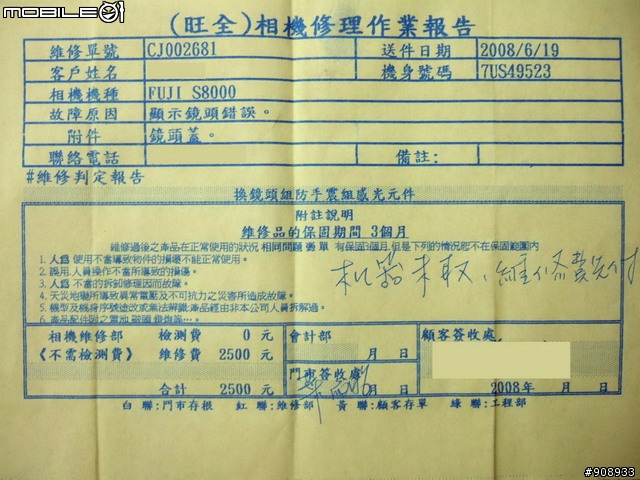 MOBILE01
(旺全)相機修理作業報告
維修單號 CJ002681 送件日期 2008/6/19
客戶姓名 機身號碼 7US49523
相機機種 FUJI S8000
故障原因 顯示鏡頭錯誤。
附件 鏡頭蓋。
聯絡電話 備註:
#維修判定報告
換鏡頭組防手震組感光元件
附註說明
維修品的保固期間 3個月
維修過後之產品在正常使用的狀況 相同問題 憑單 有保固3個月,但是下列的情況經不在保固範圍內
1. 人為 使用不當導致物件的損壞不能正常使用。
2. 誤用.人員操作不當所導致的損傷。
3. 人為 不當的拆卸修理因而故障。
4. 天災地變所導致異常電壓及不可抗力之災害所造成故障。
5. 機型及機身序號塗改或無法辨識:產品經由非本公司人員拆解過。
6. 產品配件附之電池
机器未取、維修費先付
相機維修部 檢測費 0 元 會計部 顧客簽收處
《不需檢測費》 維修費 2500 元 月 日
門市簽收處
合計 2500 元 月 日 2008年 月 日
白 聯:門市存根 紅 聯:維修部 黃 聯:顧客存單 綠 聯:工程部
#908933